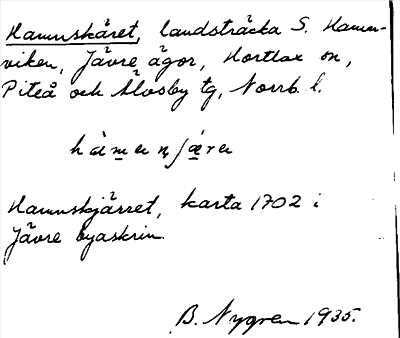 Hamnskäret, landsträcka S. Hamn-
viken, Jävre ägor, Hortlax sn,
Piteå och Älvsby tg, Norrb. l.
Hamnskjärret, karta 1702 i
Jävre byaskrin.
B. Nygren 1935.